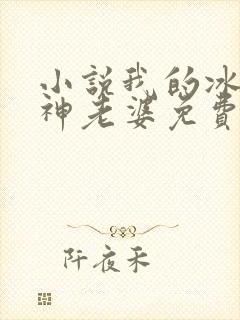 小說我的冰
神老婆免費
阡夜禾